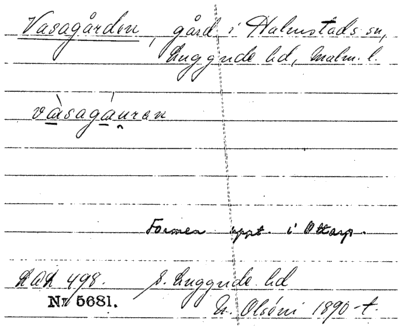 Vasagården, gård i Halmstads sn,
Luggude hd, Malm. l.
vàsagáuren
Formen uppt. i Ottarp.
LAL 498. S. Luggude hd
No 5681. N. Olséni 1890-t.